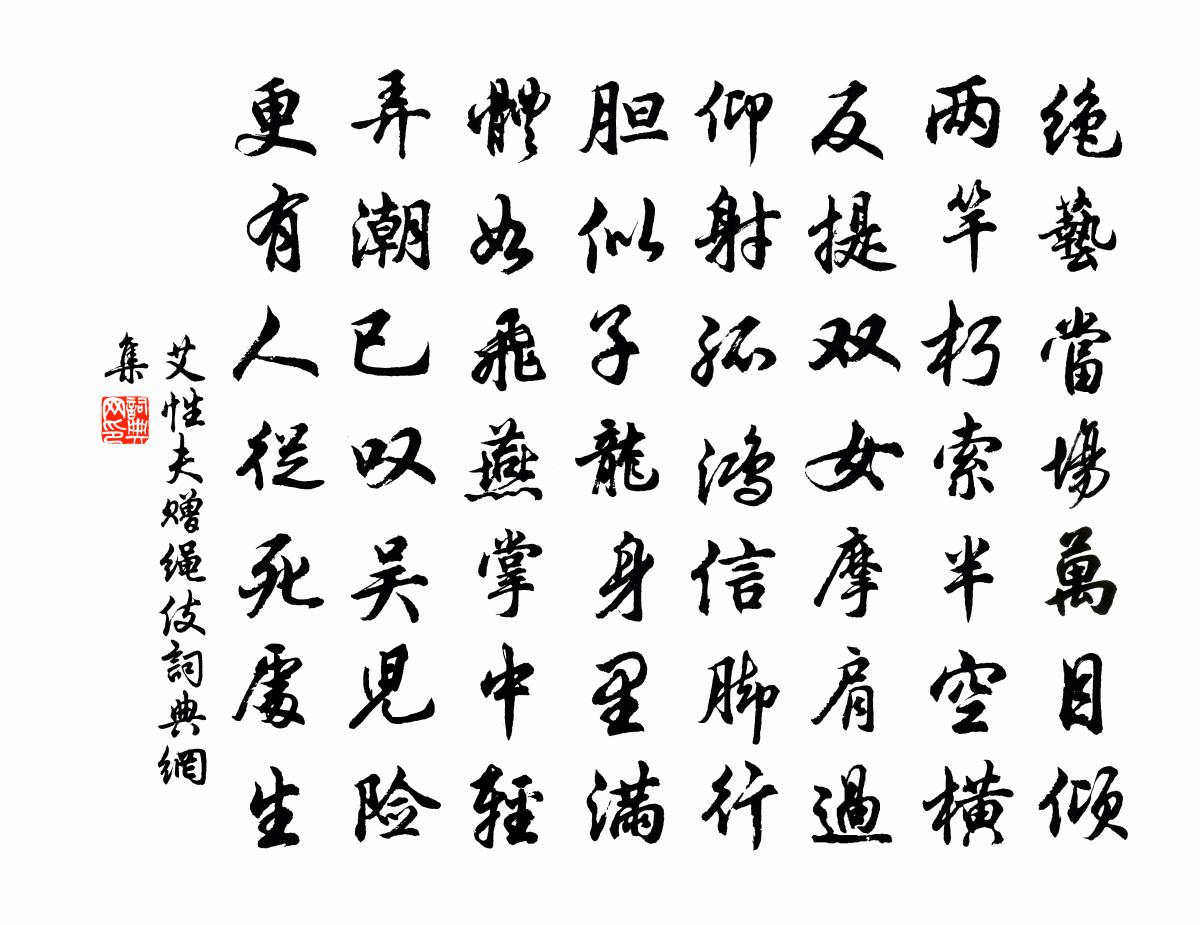 绝藝當場萬目倾
两竿朽索半空横
反提双女摩肩過
仰射孤鸿信脚行
胆似子龍身里满
體如飛燕掌中輕
弄潮已叹吴児险
更有人從死處生
艾性夫赠绳伎詞典網
集
詞典网印